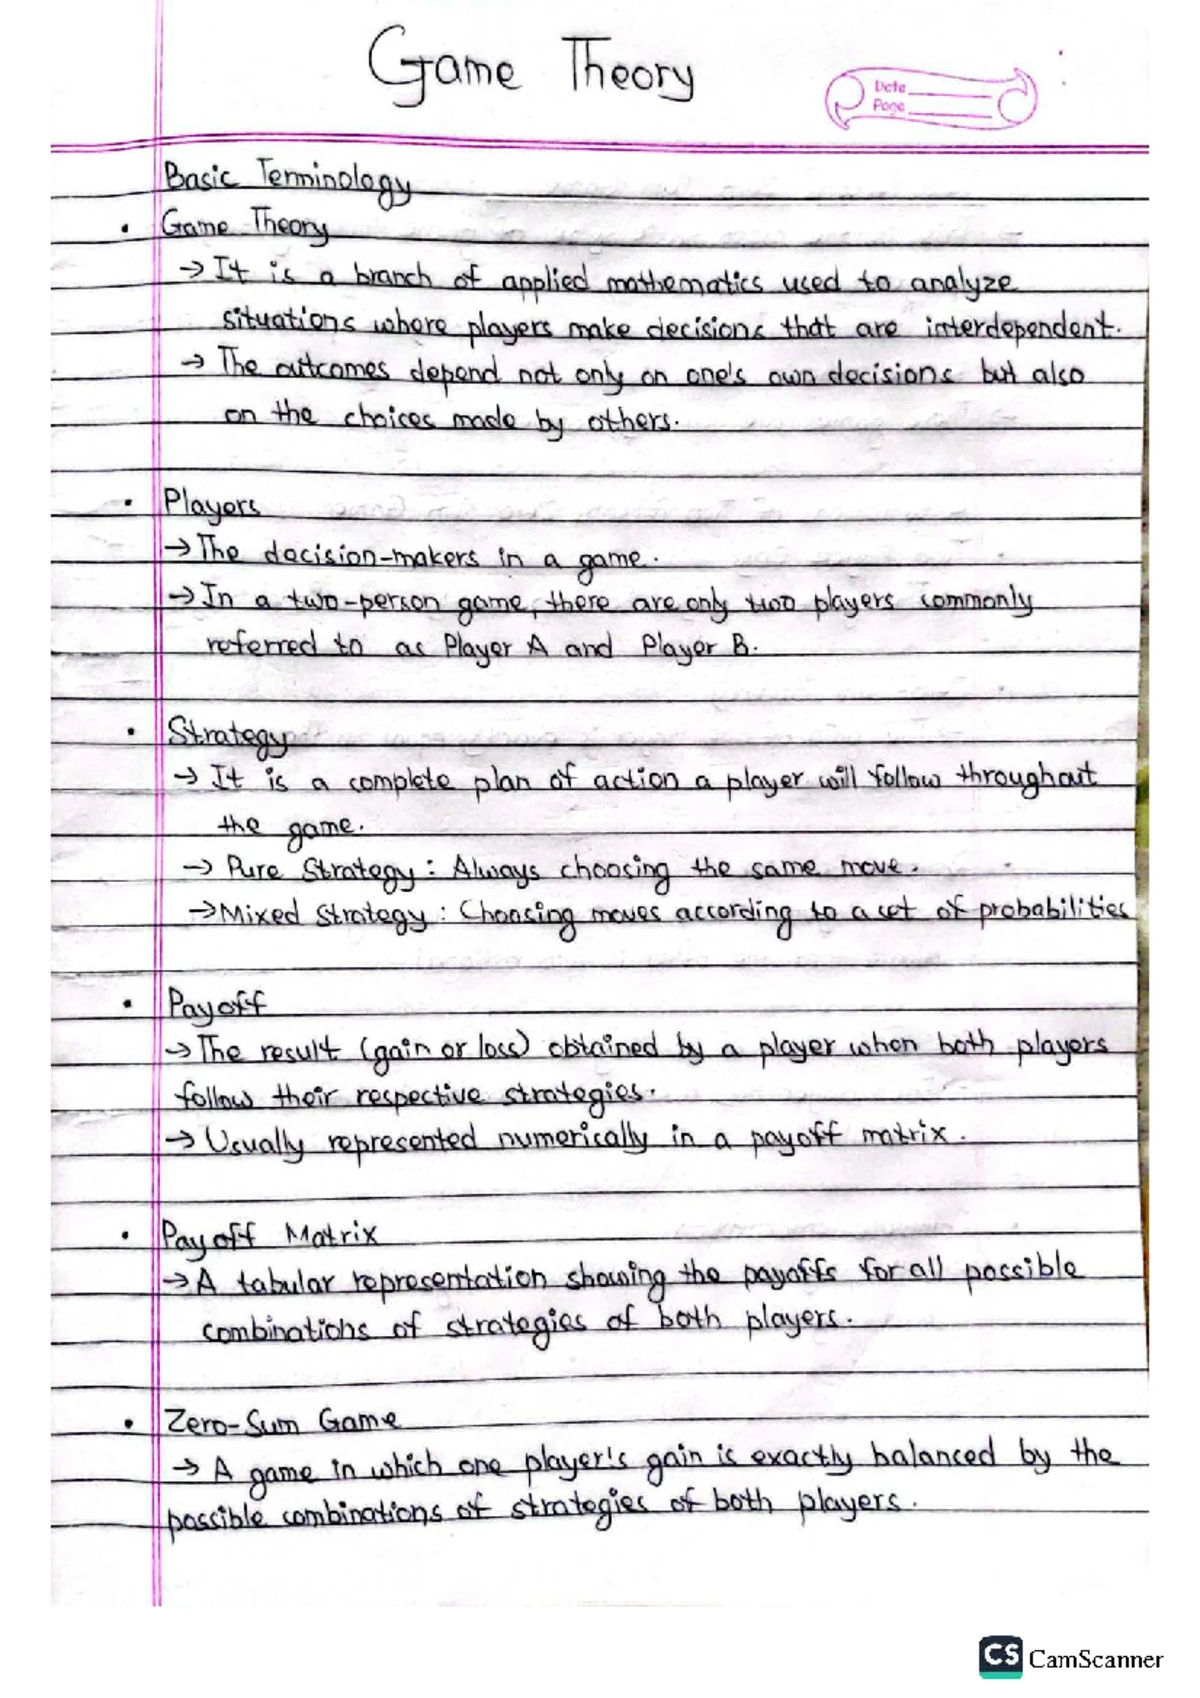 Game Theory
Date
Page
Basic Terminology
• Game Theory
→ It is a branch of applied mathematics used to analyze
situations where players make decisions that are interdependent.
→ The outcomes depend not only on one's own decisions but also
on the choices made by others.
• Players
→ The decision-makers in a game.
→ In a two-person game, there are only two players commonly
referred to as Player A and Player B.
• Strategy
→ It is a complete plan of action a player will follow throughout
the game.
→ Pure Strategy : Always choosing the same move.
→ Mixed Strategy : Choosing moves according to a set of probabilities
• Payoff
→ The result (gain or loss) obtained by a player when both players
follow their respective strategies.
→ Usually represented numerically in a payoff matrix.
• Payoff Matrix
→ A tabular representation showing the payoffs for all possible
combinations of strategies of both players.
• Zero-Sum Game
→ A game in which one player's gain is exactly balanced by the
possible combinations of strategies of both players.
CS CamScanner